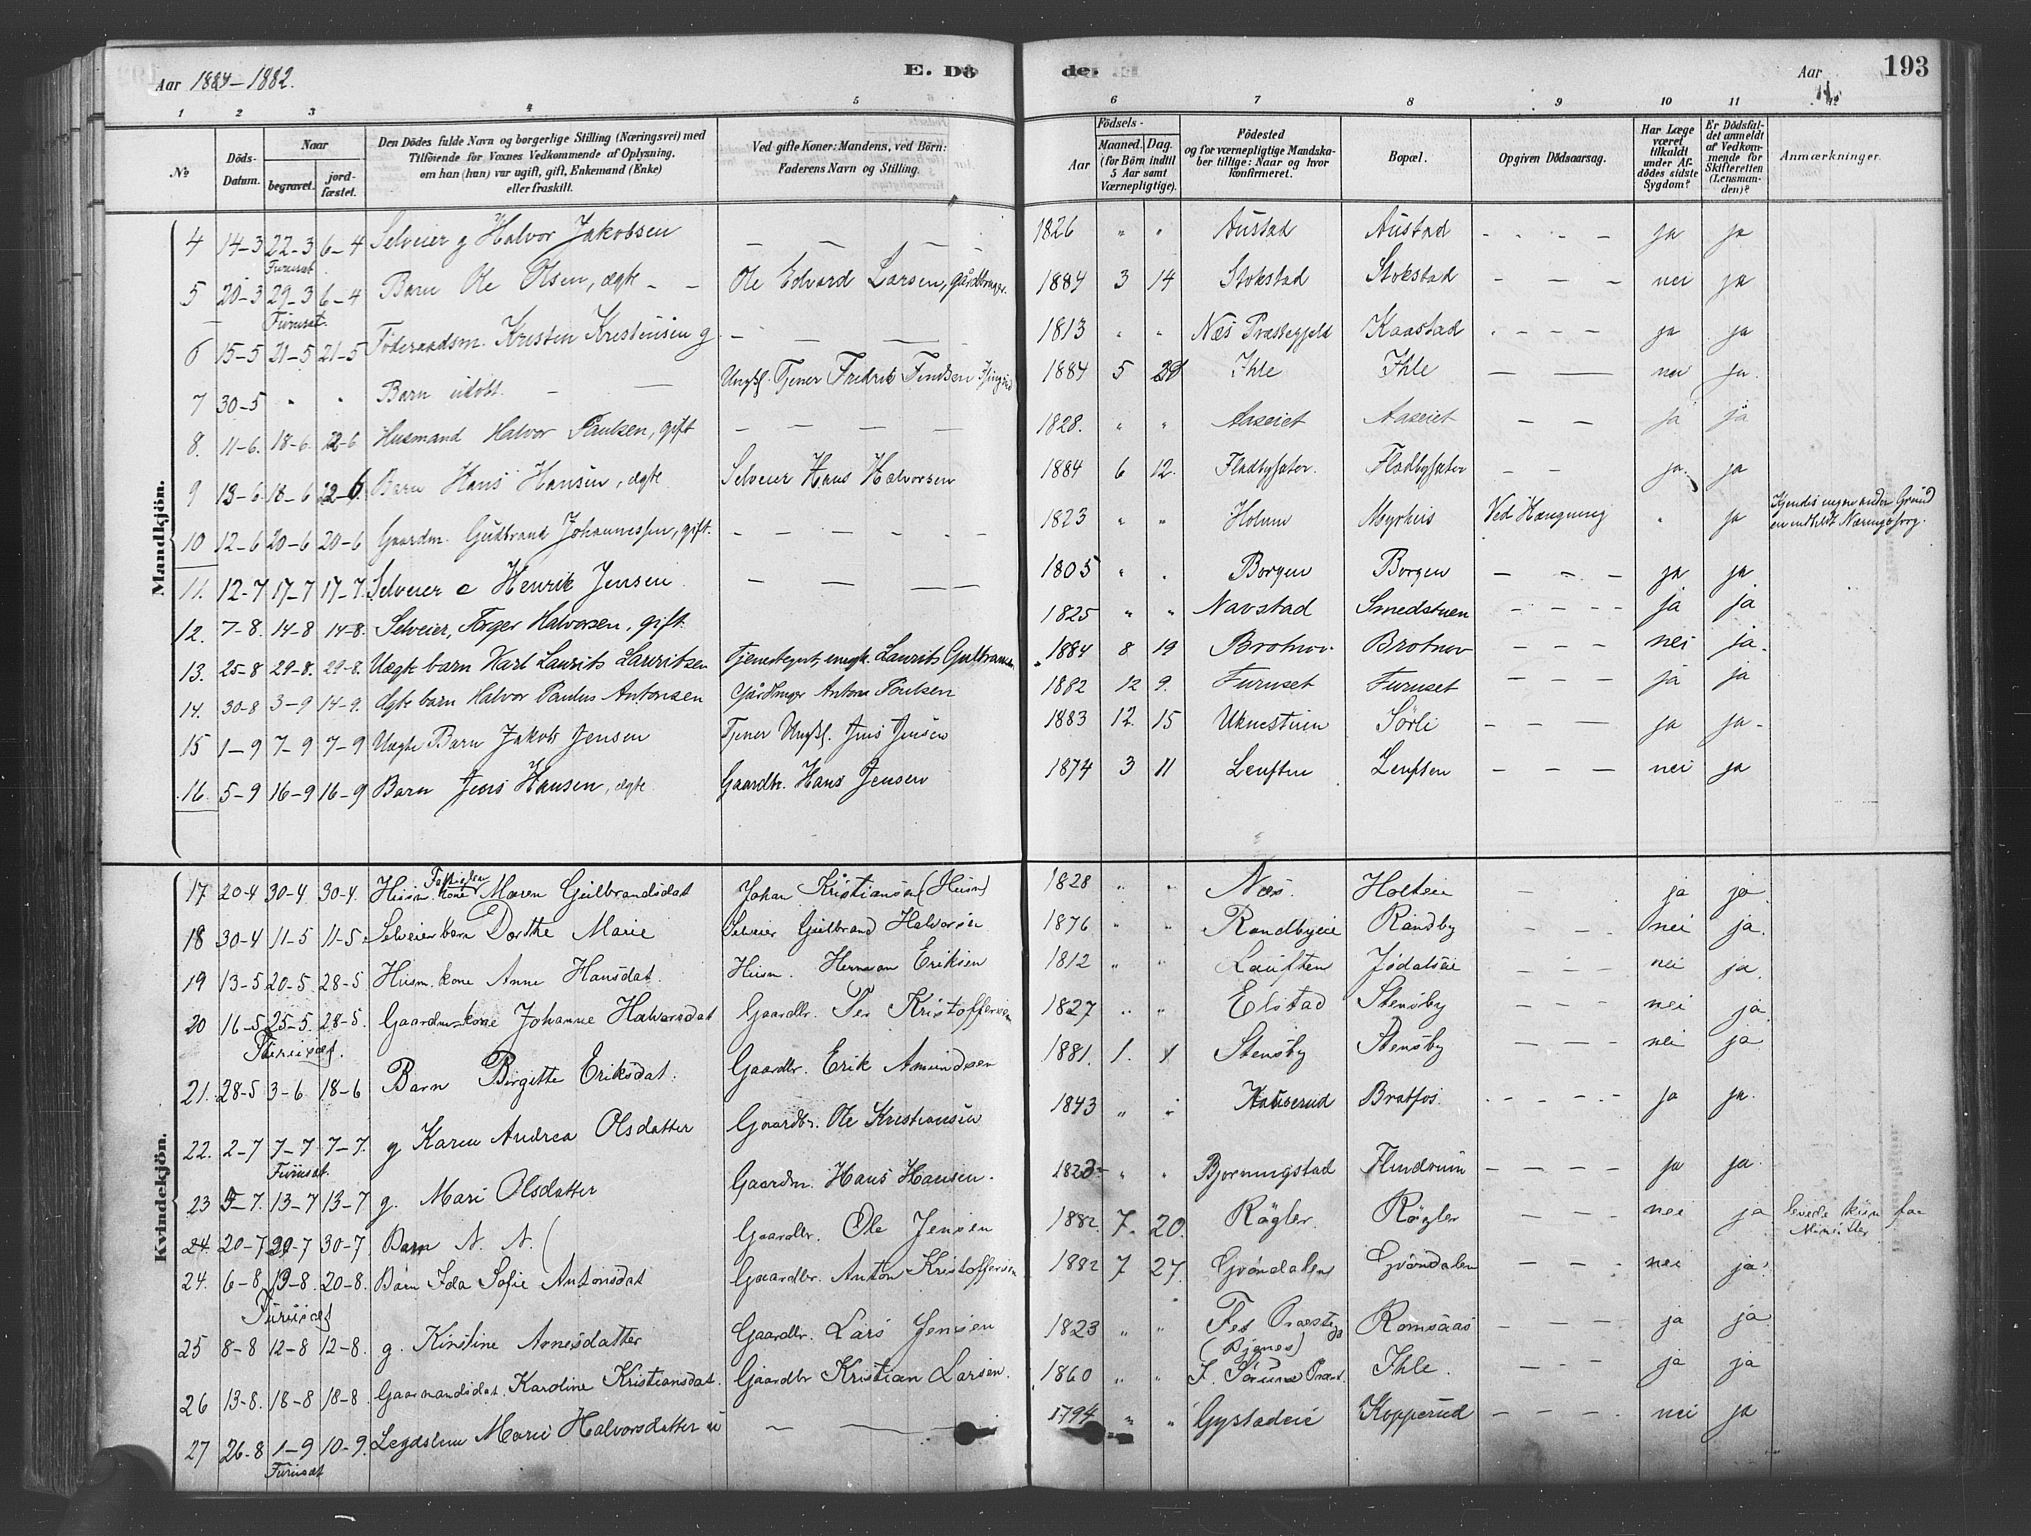 Aar 1884-1882.
E. Dö
de.
Aar
193
1 2 3 4 5 6 7 8 9 10 11 12
No
Döds-Datum.
Naar
begravet.
jordfæstet.
Den Dödes fulde Navn og borgerlige Stilling (Næringsvei) med
Tilföiende for Voxnes Vedkommende af Oplysning,
om han (hun) var ugift, gift, Enkemand (Enke)
eller fraskilt.
Ved gifte Koner: Mandens, ved Börn:
Faderens Navn og Stilling.
Födsels-
Aar
Maaned. Dag.
(for Börn indtil
5 Aar samt
Værnepligtige).
Födested
og for værnepligtige Mandskaber tillige: Naar og hvor
konfirmeret.
Bopæl.
Opgiven Dödsaarsag.
Har Læge
været
tilkaldt
under Afdödes sidste
Sygdom?
Er Dödsfaldet anmeldt
af Vedkommende for
Skifteretten
(Lensmanden)?
Anmærkninger.
Mandkjön.
4 14-3 22-3 6-4 Selveier g Halvor Jakobsen — — — — 1826 " " Austad Austad - - - - ja ja
Furuset
5 20-3 29-3 6-4 Barn Ole Olsen, ægte - - Ole Edvard Larsen, 1884 3 14 Stokstad Stokstad - - - nei ja
Furuset.
6 15-5 21-5 21-5 Föderaadsm. Kristen Kristensen g — — — 1813 " " Næs Præstegjeld Kaastad - - - - ja ja
7 30-5 " " Barn — — Ungkl. Tjener Fredrik 1884 5 Ihle Ihle — — — nei ja.
8. 11-6. 18-6. 22-6 Husmand Halvor Paulsen, gift — — — — 1828. " " Aaseiet Aaseiet — — ja ja
9 13-6 18-6 22-6 Barn Hans Hansen, ægte Selveier Hans Halvorsen 1884 6 12. Fladbysæter. Fladbysæter — — ja ja
10 12-6 20-6 20-6 Gaardm. Gudbrand Johannessen, gift. — — — — 1823 " " Holum Myrhus Ved Hængning " ja Kjendes ingen anden Grund
en indbildt Næringssorg.
11. 12-7 17-7 17-7 Selveier e Henrik Jensen — — — — 1805 " " Borgen Borgen — — — ja ja
12. 7-8. 14-8 14-8. Selveier, Torger Halvorsen, gift. 1825 " " Navstad Smedstuen - - - - ja ja
13. 25-8 29-8. 29-8. Uægte barn Karl Laurits Lauritsen Laurits 1884 8 19 Brotnov Brotnov - - - - nei ja.
14. 30-8 3-9 14-9. Ægte barn Halvor Paulus Antonsen Anton Paulsen 1882 12 9. Furuset Furuset - - - - ja ja
15 1-9 7-9 7-9 Uægte Barn Jakob Jensen Tjener Ungkl. Jens Jensen 1883 12. 15 Uknestuen Sörli - - — ja ja-
16. 5-9 16-9 16-9 Barn Jens Hansen, ægte Gaardbr. Hans Jensen 1874 3 11 Lenften Lenften — — — nei ja
Kvindekjön.
17 20-4 30-4 30-4. Husm. kone Maren Gulbrandsdat Johan Kristiansen (Husm) 1828 " " Næs. Holteie — — ja ja
18 30-4 11-5 11-5. Selveier barn Dorthe Marie Selveier Gulbrand Halvorsen 1876 " " Randbyeie Randby — — nei ja.
19 13-5 20-5. 28-5 Husm. kone Anne Hansdat Husm. Herman Eriksen 1812 " " Lauften Jödalseie - - - nei ja.
20 16-5 25-5. 28-5. Gaardm. kone Johanne Halvorsdat Gaardbr. Per Kristoffersen 1827 " " Elstad Stensby — — — nei ja.
Furuset.
21. 28-5 3-6 18-6 Barn Birgitte Eriksdat. Gaardbr. Erik Amundsen 1881. 1. 4 Stensby Stensby — — — nei ja
22. 2-7 7-7 7-7. g Karen Andrea Olsdatter Gaardbr. Ole Kristiansen 1843 " " Kauserud Bratfos. - - - - ja ja.
Furuset.
23 5-7. 13-7 13-7 g. Mari Olsdatter Gaardm. Hans Hansen. 1823 " " Bjorningstad Flindrum — — — — ja ja.
24. 20-7 30-7 Barn N. N. ( Gaardbr. Ole Jensen 1882. 7. 20. Rögler. Rögler — — — nei ja levede kun faa
Minutter
24. 6-8. 13-8. 20-8. Barn Ida Sofie Antonsdat Gaardbr. Anton Kristoffersen 1882 7 27. Gröndalen Gröndalen — — — nei ja.
Furuset
25 8-8 12-8 12-8. g. Kirstine Arnesdatter Gaardbr. Lars Jensen 1823 " " Fet Præsteg. Romsaas — — — ja ja
26 13-8. 18-8 18-8. Gaarmandsdat. Karoline Kristiansdat. Gaardbr Kristian Larsen. 1860 " " Ihle. - - - ja ja
27 26-8 1-9 10-9. Marie Halvorsdatter — — — 1794 " " Gystadeie Kopperud — — — — nei ja
Furuset